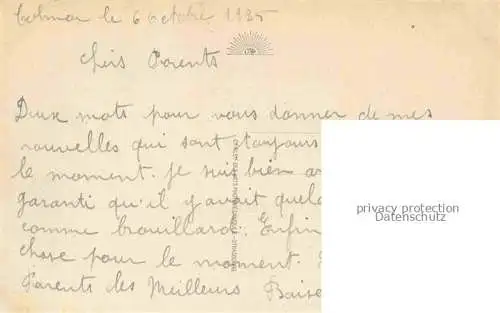 Colmar le 6 octobre 1935
Chers Parents
Deux mots pour vous donner de mes
nouvelles qui sont toujours
le moment. je suis bien
garanti qu'il y avait quel
comme brouillard. Enfin
chose pour le moment.
Parents les Meilleurs Baise
privacy protection
Datenschutz